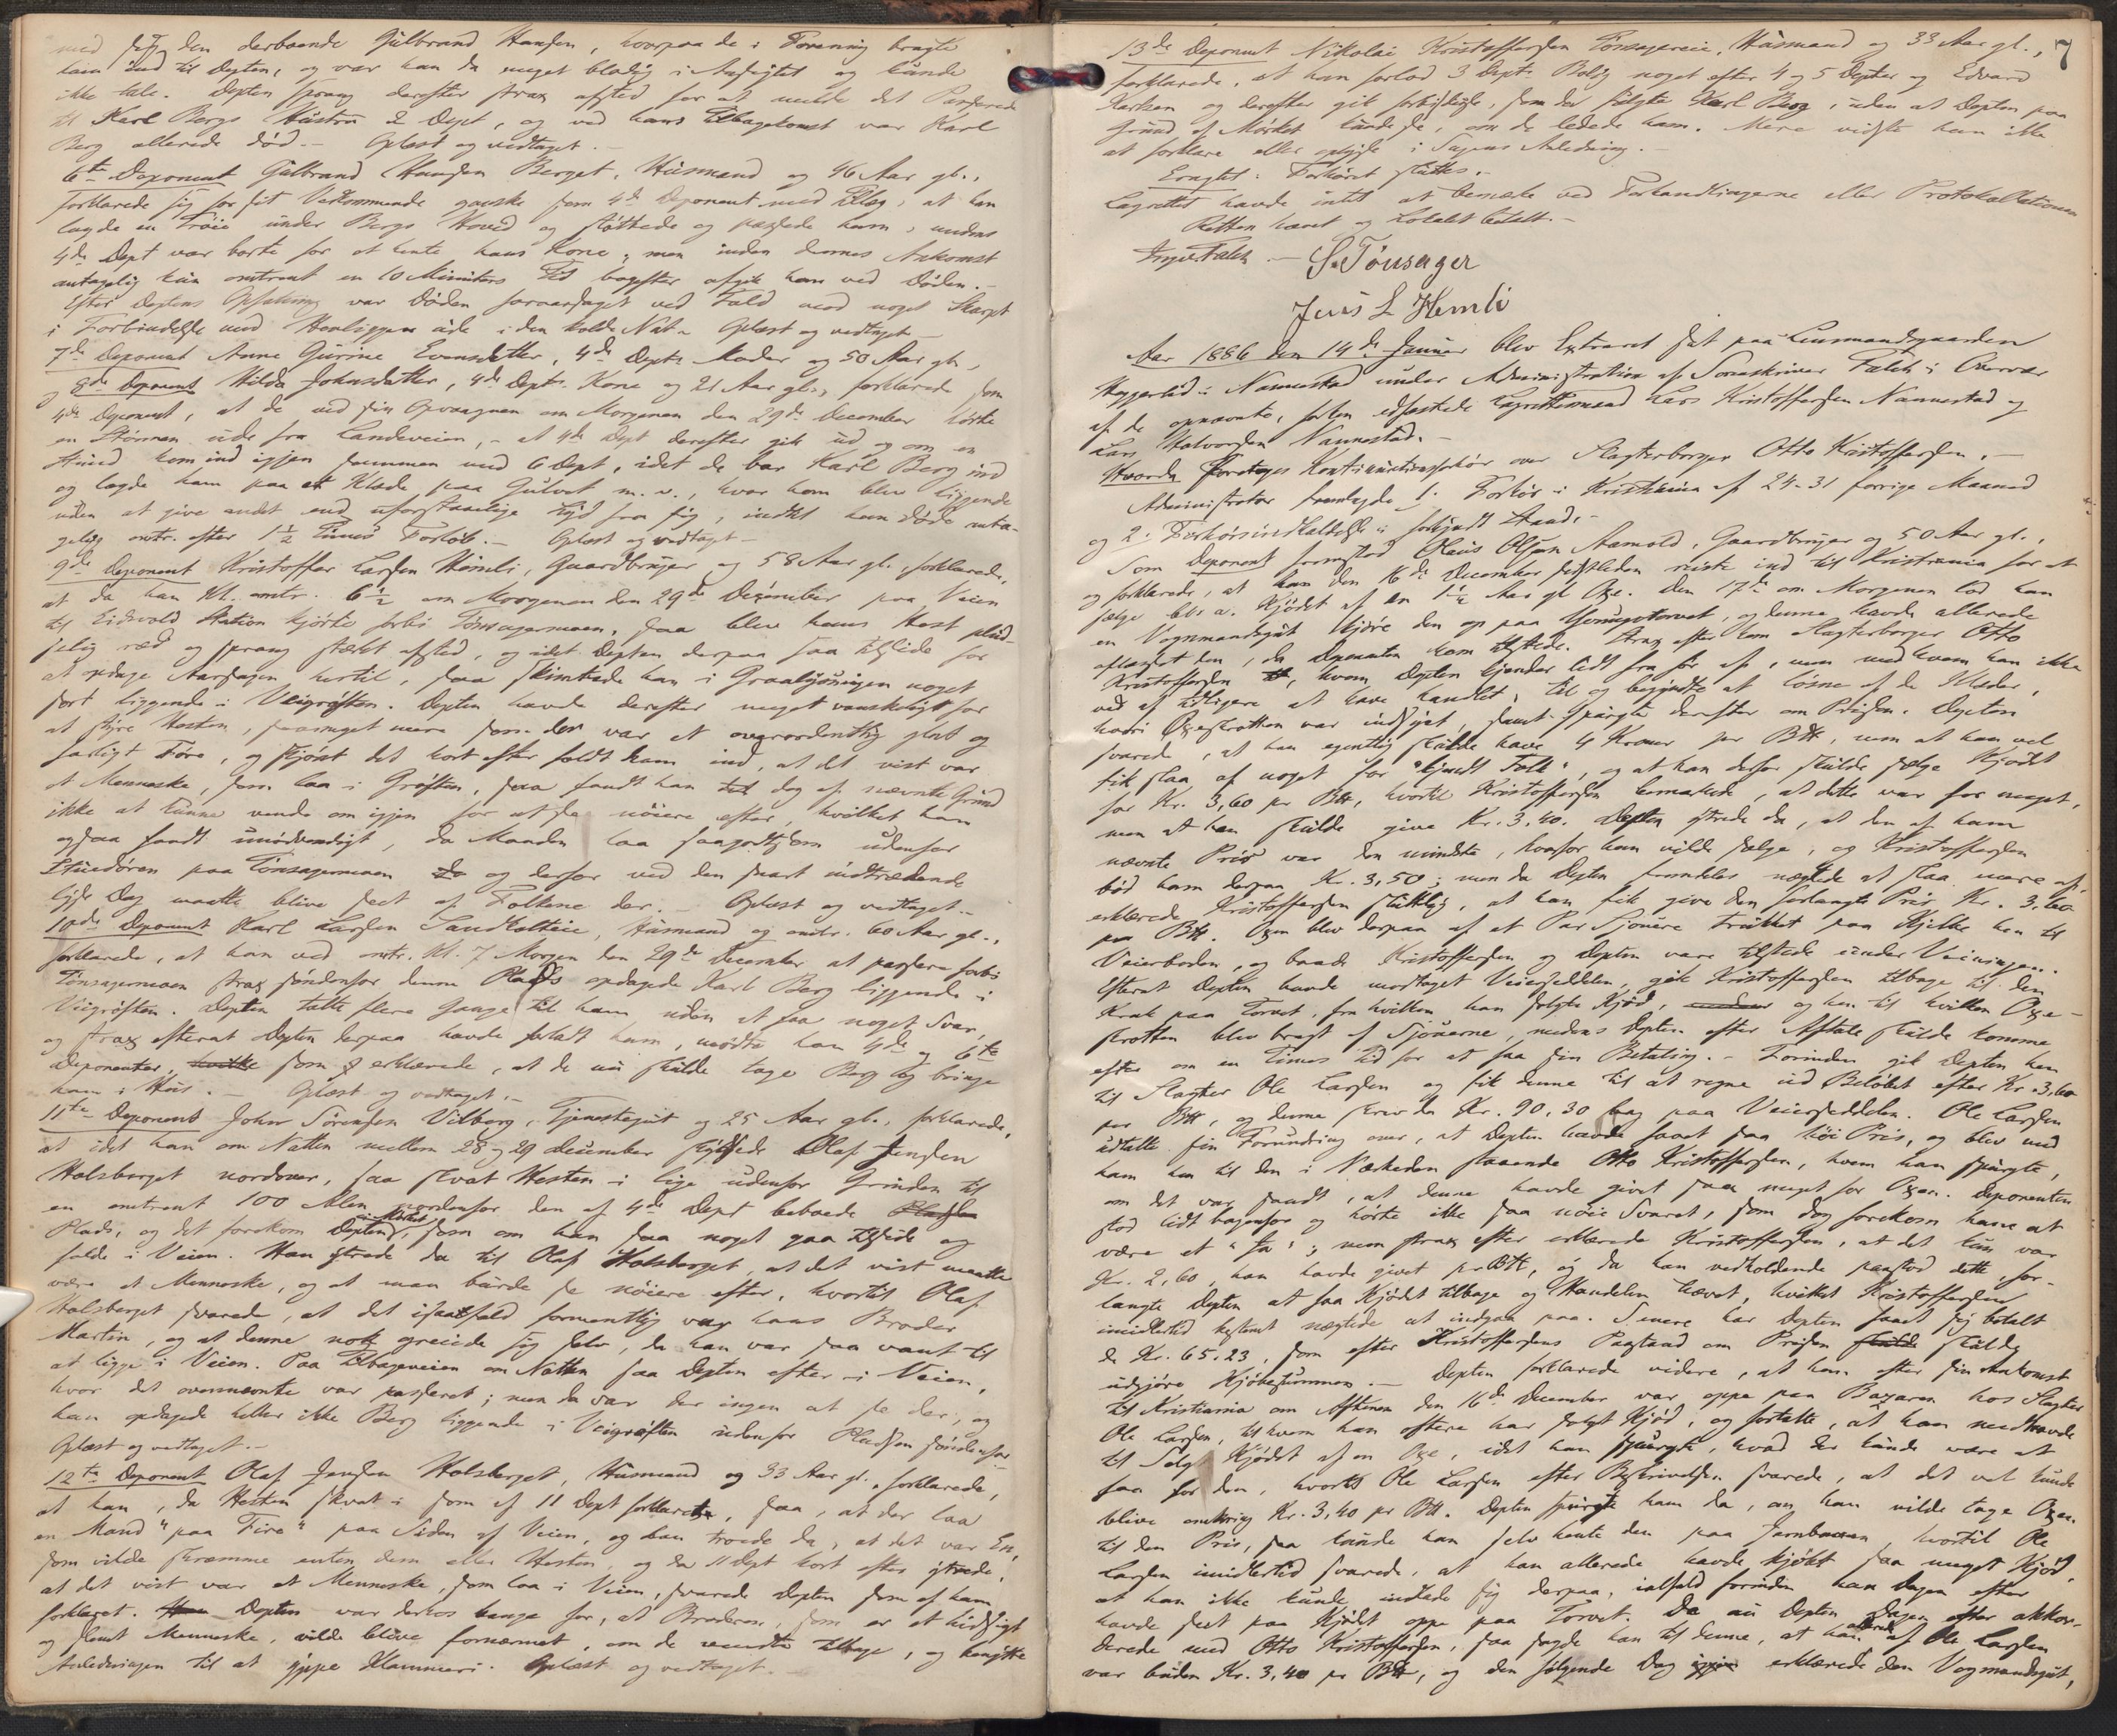 med sig den derboende Gulbrand Hansen, hvorpaa de i Forening bragte
ham ind til Depten, og var han da meget blodig i Ansigtet og kunde
ikke tale. Depten sprang derefter strax afsted for at melde det Passerede
til Karl Bergs Hustru 2 Dept, og ved hans Tilbagekomst var Karl
Berg allerede død. – Oplæst og vedtaget. –
6te Deponent Gulbrand Hansen Berget, Husmand og 46 Aar gl.,
forklarede sig for sit Vedkommende ganske som 4de Deponent med Tillæg, at han
lagde en Trøie under Bergs Hoved og støttede og passede ham, medens
4de Dept var borte for at hente hans Kone; men inden dennes Ankomst
antagelig kun omtrent en 10 Minuters Tid bagefter afgik han ved Døden. –
Efter Deptens Opfatning var Døden foraarsaget ved Fald mod noget Skarpt
i Forbindelse med Henliggen ude i den kolde Nat. – Oplæst og vedtaget –
7de Deponent Anne Gurine Evensdatter, 4de Depts Moder og 50 Aar gl.,
og 8de Deponent Hilda Johnsdatter, 4de Depts Kone og 21 Aar gl., forklarede som
4de Deponent, at de ved sin Opvaagnen om Morgenen den 29de December hørte
en Stønnen ude fra Landeveien, – at 4de Dept derefter gik ud og om en
Stund kom ind igjen sammen med 6 Dept, idet de bar Karl Berg ind
og lagde ham paa et Klæde paa Gulvet m. v., hvor han blev liggende
uden at give andet end uforstaaelige Lyd fra sig, indtil han døde anta-
gelig omtr. efter 1½ Times Forløb. – Oplæst og vedtaget –
9de Deponent Kristoffer Larsen Hemli, Gaardbruger og 58 Aar gl., forklarede,
at da han Kl. omtr. 6½ om Morgenen den 29de December paa Veien
til Eidsvold Station kjørte forbi Tønsagermoen, saa blev hans Hest plud-
selig ræd og sprang stækt afsted, og idet Depten derpaa saa tilside for
at opdage Aarsagen hertil, saa skimtede han i Graalysningen noget
sort liggende i Veigrøften. Depten havde derefter meget vanskeligt for
at styre Hesten, saameget mere som der var et overordentlig glat og
farligt Føre, og skjønt det kort efter faldt ham ind, at det vist var
et Menneske, som laa i Grøften, saa fandt han dog af nævnte Grund
ikke at kunne vende om igjen for at se nøiere efter, hvilket han
ogsaa fandt unødvendigt, da Manden laa saagodtsom udenfor
Stuedøren paa Tønsagermoen og derfor ved den snart indtrædende
lyse Dag maatte blive seet af Folkene der. – Oplæst og vedtaget. –
10de Deponent Karl Larsen Sandholteie, Husmand og omtr. 60 Aar gl.,
forklarede, at han ved omtr. Kl. 7 Morgen den 29de December at passere forbi
Tønsagermoen strax søndenfor denne Plads opdagede Karl Berg liggende i
Veigrøften. Depten talte flere Gange til ham uden at faa noget Svar,
og strax efterat Depten derpaa havde forladt ham, mødte han 4de og 6te
Deponenter, som erklærede, at de nu skulde tage Berg og bringe
ham i Hus. – Oplæst og vedtaget. –
11te Deponent Johan Sørensen Vilberg, Tjenestegut og 25 Aar gl., forklarede,
at idet han om Natten mellem 28 og 29 December skydsede Olaf Jensen
Holsberget nordover, saa skvat Hesten i lige udenfor Grinden til
en omtrent 100 Alen nordenfor den af 4de Dept beboede
Plads, og det forekom Depten i Mørket, som om han saa noget gaa tilside og
falde i Veien. Han ytrede da til Olaf Holsberget, at det vist maatte
være et Menneske, og at man burde se nøiere efter, hvortil Olaf
Holsberget svarede, at det isaafald formentlig var hans Broder
Martin, og at denne nok greiede sig selv, da han var saa vant til
at ligge i Veien. Paa Tilbageveien om Natten saa Depten efter i Veien,
hvor det ovennævnte var passeret; men da var der ingen at se der, og
han opdagede heller ikke Berg liggende i Veigrøften udenfor Pladsen søndenfor.
Oplæst og vedtaget. –
12te Deponent Olaf Jensen Holsberget, Husmand og 33 Aar gl., forklarede,
at han, da Hesten skvat i som af 11 Dept forklaret, saa, at der laa
en Mand "paa Fire" paa Siden af Veien, og han troede da, at det var En,
som vilde skræmme enten dem eller Hesten, og da 11 Dept kort efter ytrede,
at det vist var et Menneske, som laa i Veien, svarede Depten som af ham
forklaret. Depten var derhos bange for, at Broderen, som er et hidsigt
og slemt Menneske, vilde blive fornærmet, om de vendte tilbage, og benytte
Anledningen til at yppe Klammeri. Oplæst og vedtaget. –
7
13de Deponent Nikolai Kristoffersen Tønsagereie, Husmand og 33 Aar gl.,
forklarede, at han forlod 3 Depts Bolig noget efter 4 og 5 Depter og Edvard
og derefter gik forbi , som der fulgte Karl Berg, uden at Depten paa
Grund af Mørket kunde se, om de ledede ham. Mere vidste han ikke
at forklare eller oplyse i Sagens Anledning. –
Eragtet: Forhøret sluttes. –
Lagrettet havde intet at bemærke ved Forhandlingerne eller Protokollationen
Retten hævet og Lokalet betalt. –
Falch. – S. Tønsager
Jens L Hemli
Aar 1886 den 14de Januar blev Extraret sat paa Lensmandsgaarden
Haggerlid i Nannestad under Administration af Sorenskriver Falch i Overvær
af de opnævnte, forlen edfæstede Lagrettesmænd Lars Kristoffersen Nannestad og
Lars Halvorsen Nannestad. –
Hvorda foretoges Kontinuationsforhør over Slagterborger Otto Kristoffersen. –
Administrator fremlagde 1. Forhør i Kristiania af 24–31 forrige Maaned
og 2. Forhørsindkaldelse i forkyndt Stand. –
Som Deponent fremstod Olaus Olsen Aamold, Gaardbruger og 50 Aar gl.,
og forklarede, at han den 16de December sidstleden reiste ind til Kristiania for at
sælge bl. a. Kjødet af en 1½ Aar gl Oxe. Den 17de om Morgenen lod han
en Vognmandsgut kjøre den op paa Youngstorvet, og denne havde allerede
aflæsset den, da Deponenten kom tilstede. Strax efter kom Slagterborger Otto
Kristoffersen, hvem Depten kjender lidt fra før af, men med hvem han ikke
ved af tidligere at have handlet, til og begyndte at løsne af de Klæder,
hvori Oxeskrotten var indsyet, samt spurgte derefter om Prisen. Depten
svarede, at han egentlig skulde have 4 Kroner pr B℔, men at han vel
fik slaa af noget for "kjendt Folk", og at han derfor skulde sælge Kjødet
for Kr. 3,60 pr B℔, hvortil Kristoffersen bemærkede, at dette var for meget,
men at han skulde give Kr. 3.40. Depten ytrede da, at den af ham
nævnte Pris var den mindste, hvorfor han vilde sælge, og Kristoffersen
bød ham derpaa Kr. 3,50; men da Depten fremdeles nægtede at slaa mere af,
erklærede Kristoffersen sluttelig, at han fik give den forlangte Pris, Kr. 3,60
pr B℔. Oxen blev derpaa af et Par Sjouere trukket paa Kjelke hen til
Veierboden, og baade Kristoffersen og Depten vare tilstede under Veiningen.
Efterat Depten havde modtaget Veiersedlelen, gik Kristoffersen tilbage til den
Krak paa Torvet, fra hvilken han solgte Kjød, og hen til hvilken Oxe-
skrotten blev bragt af Sjouerne, medens Depten efter Aftale skulde komme
efter om en Times Tid for at faa sin Betaling. – Forinden gik Depten hen
til Slagter Ole Larsen og fik denne til at regne ud Beløbet efter Kr. 3,60
pr B℔, og denne skrev da Kr. 90,30 bag paa Veiersedlelen. Ole Larsen
udtalte sin Forundring over, at Depten havde faaet saa høi Pris, og blev med
ham hen til den i Nærheden staaende Otto Kristoffersen, hvem han spurgte,
om det var sandt, at denne havde givet saa meget for Oxen. Deponenten
stod lidt bagenfor og hørte ikke saa nøie Svaret, som dog forekom ham at
være et "Ja"; men strax efter erklærede Kristoffersen, at det kun var
Kr. 2,60, han havde givet pr B℔, og da han vedholdende paastod dette, for-
langte Depten at faa Kjødet tilbage og Handelen hævet, hvilket Kristoffersen
imidlertid bestemt nægtede at indgaa paa. Senere har Depten faaet sig betalt
de Kr. 65.23, som efter Kristoffersens Paastand om Prisen skulde
udgjøre Kjøbesummen. – Depten forklarede videre, at han efter sin Ankomst
til Kristiania om Aftenen den 16de December var oppe paa Bazaren hos Slagter
Ole Larsen, til hvem han oftere har solgt Kjød, og fortalte, at han medhavde
til Salg Kjødet af en Oxe, idet han spurgte, hvad der kunde være at
faa for den, hvortil Ole Larsen efter Beskrivelsen svarede, at det vel kunde
blive omkring Kr. 3,40 pr B℔. Depten spurgte ham da, om han vilde tage Oxen
til den Pris, saa kunde han selv hente den paa Jernbanen, hvortil Ole
Larsen imidlertid svarede, at han allerede havde kjøbt saa meget Kjød,
at han ikke kunde indlade sig derpaa, ialfald forinden han Dagen efter
havde seet paa Kjødet oppe paa Torvet. Da nu Depten Dagen efter akkor-
derede med Otto Kristoffersen, saa sagde han til denne, at han allerede af Ole Larsen
var buden Kr. 3,40 pr B℔, og den følgende Dag erklærede den Vognmandsgut,